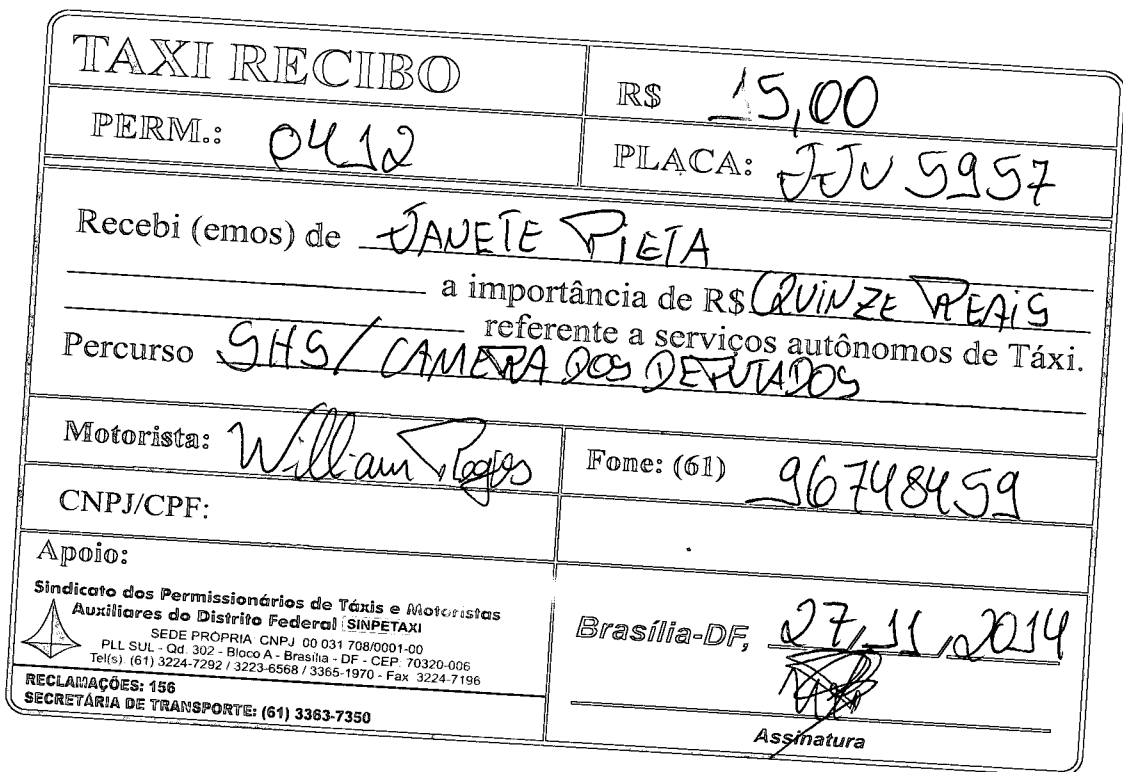 TAXI RECIBO
R$ 15,00
PERM.: 0412
PLACA: JJU 5957
Recebi (emos) de JANETE PIETA
a importância de R$ QUINZE REAIS
referente a serviços autônomos de Táxi.
Percurso SHS / CAMERA DOS DEPUTADOS
Motorista: William
Fone: (61) 96748459
CNPJ/CPF:
Apoio:
Sindicato dos Permissionários de Táxis e Motoristas
Auxiliares do Distrito Federal SINPETAXI
SEDE PRÓPRIA CNPJ 00 031 708/0001-00
PLL SUL - Qd. 302 - Bloco A - Brasília - DF - CEP: 70320-006
Tel(s) (61) 3224-7292 / 3223-6568 / 3365-1970 - Fax 3224-7196
RECLAMAÇÕES: 156
SECRETÁRIA DE TRANSPORTE: (61) 3363-7350
Brasília-DF, 27, 11, 2014
Assinatura